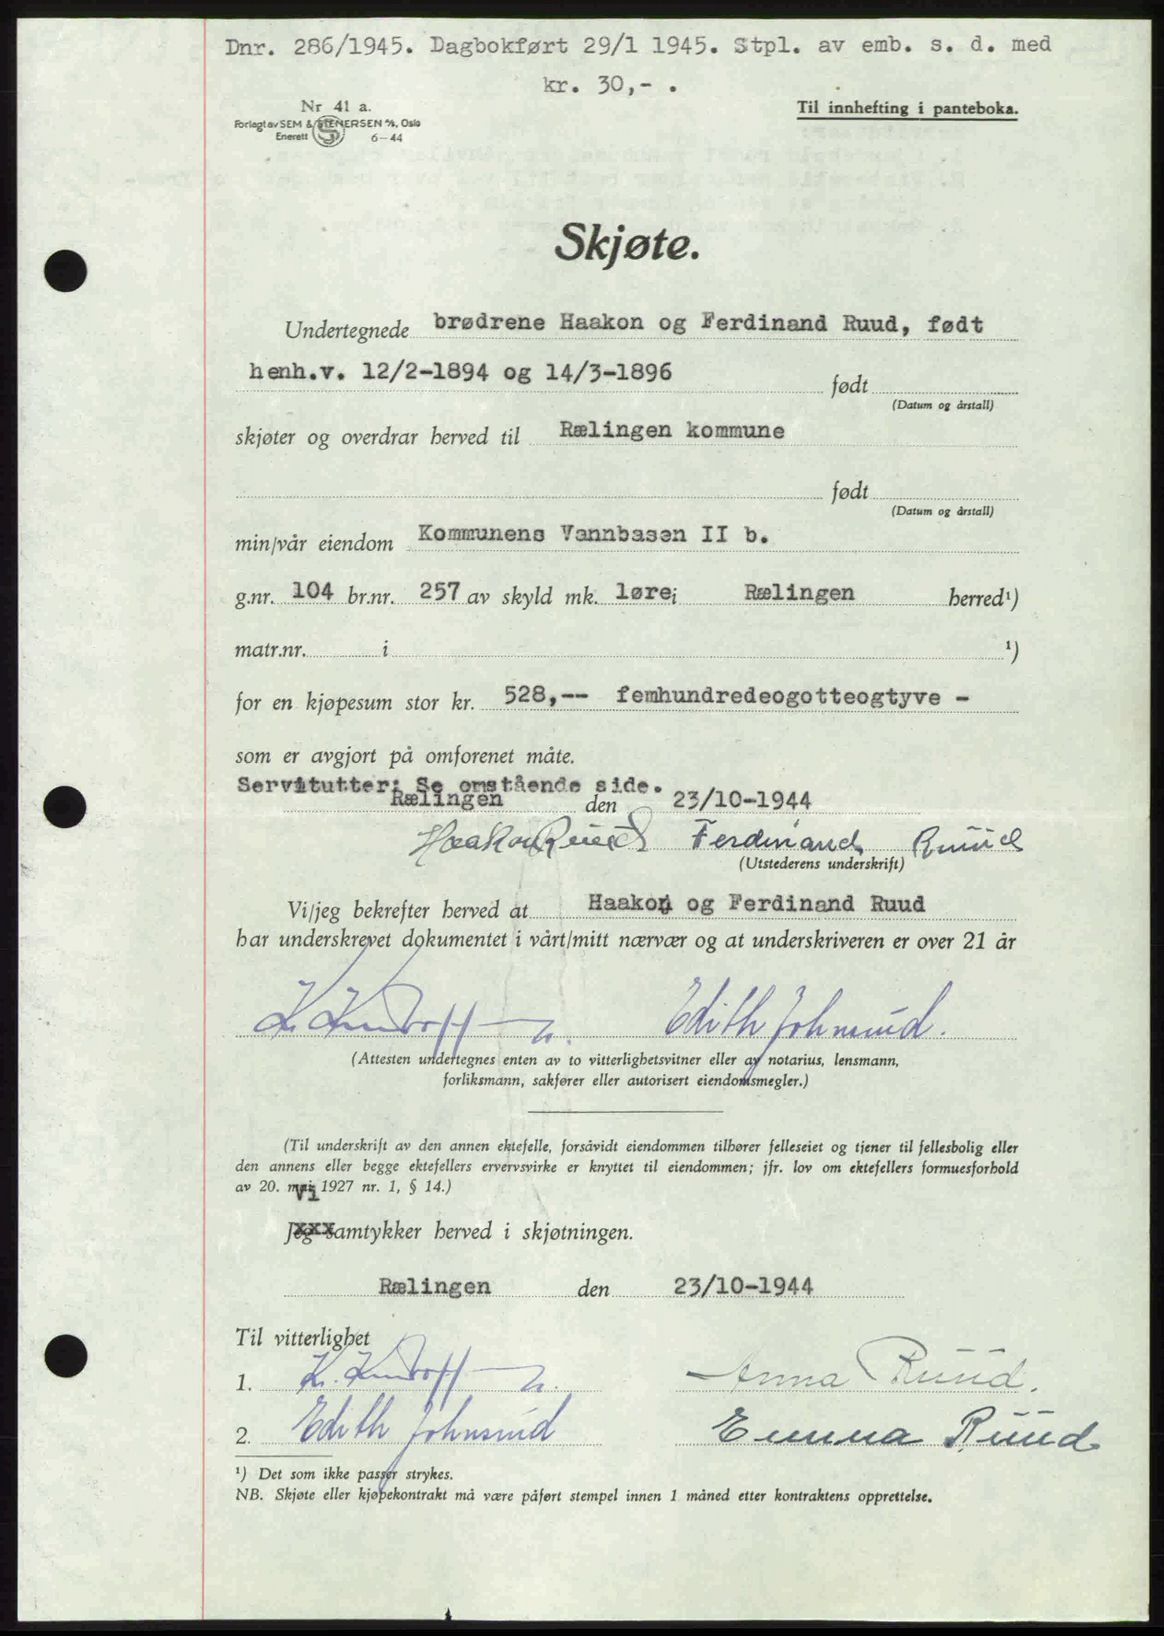 Dnr. 286/1945. Dagbokført 29/1 1945. Stpl. av emb. s. d. med
kr. 30,- .
Nr 41 a.
Til innhefting i panteboka.
Forlagt av SEM & STENERSEN A/S, Oslo
Enerett S 6-44
Skjøte.
Undertegnede brødrene Haakon og Ferdinand Ruud, født
henh.v. 12/2-1894 og 14/3-1896 født
(Datum og årstall)
skjøter og overdrar herved til Rælingen kommune
født
(Datum og årstall)
min/vår eiendom Kommunens Vannbasen II b.
g.nr. 104 br.nr. 257 av skyld mk. løre i Rælingen herred¹)
matr.nr. i ¹)
for en kjøpesum stor kr. 528,-- femhundredeogotteogtyve -
som er avgjort på omforenet måte.
Servitutter: Se omstående side.
Rælingen den 23/10-1944
Haakon Ruud Ferdinand Ruud
(Utstederens underskrift)
Vi/jeg bekrefter herved at Haakon og Ferdinand Ruud
har underskrevet dokumentet i vårt/mitt nærvær og at underskriveren er over 21 år
Edith Johnsrud.
(Attesten undertegnes enten av to vitterlighetsvitner eller av notarius, lensmann,
forliksmann, sakfører eller autorisert eiendomsmegler.)
(Til underskrift av den annen ektefelle, forsåvidt eiendommen tilhører felleseiet og tjener til fellesbolig eller
den annens eller begge ektefellers ervervsvirke er knyttet til eiendommen; jfr. lov om ektefellers formuesforhold
av 20. mai 1927 nr. 1, § 14.)
Vi
Jeg samtykker herved i skjøtningen.
Rælingen den 23/10-1944
Til vitterlighet
1. Anna Ruud.
2. Edith Johnsrud Emma Ruud
¹) Det som ikke passer strykes.
NB. Skjøte eller kjøpekontrakt må være påført stempel innen 1 måned etter kontraktens opprettelse.